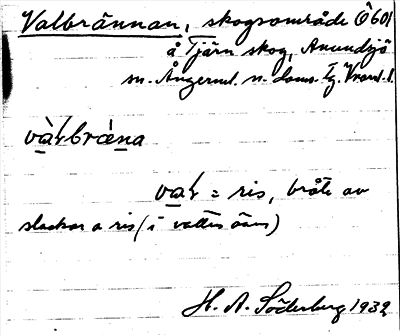 Valbrännan, skogsområde Ö 601
å Tjärn skog, Anundsjö
sn. Ångerml. n. doms. Tg. Vraml.
vàḷbræ̀na
vaḷ = ris, bråte av
slackar o ris (i vattenåar)
H. A. Söderberg 1932